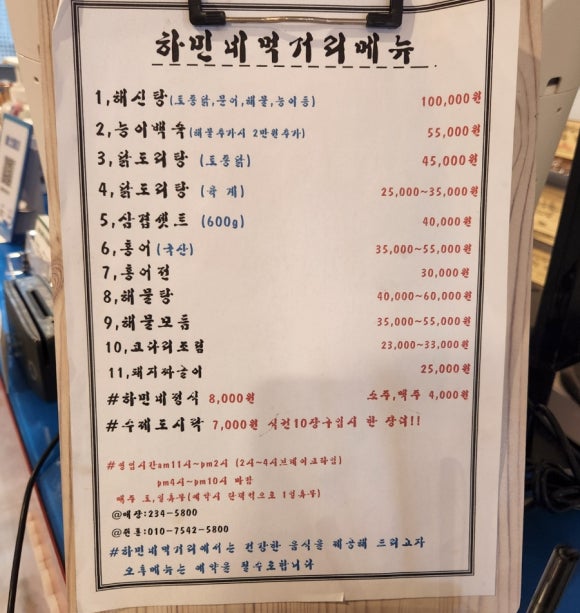 하민네먹거리메뉴
1,해신탕(토종닭,문어,해물,능이등) 100,000원
2,능이백숙(해물추가시 2만원추가) 55,000원
3,닭도리탕 (토종닭) 45,000원
4,닭도리탕 (육 계) 25,000~35,000원
5,삼겹셋트 (600g) 40,000원
6,홍어(국산) 35,000~55,000원
7,홍어전 30,000원
8,해물탕 40,000~60,000원
9,해물모듬 35,000~55,000원
10,코다리조림 23,000~33,000원
11,돼지짜글이 25,000원
#하민네정식 8,000원 소주,맥주 4,000원
#수제도시락 7,000원 식권10장구입시 한 장더!!
#영업시간am11시~pm2시 (2시~4시브레이크타임)
pm4시~pm10시 마감
매주 토,일휴무(예약시 탄력적으로 1일휴무)
@매장:234-5800
@핸폰:010-7542-5800
#하민네먹거리에서는 건강한 음식을 제공해 드리고자
오후메뉴는 예약을 필수로합니다